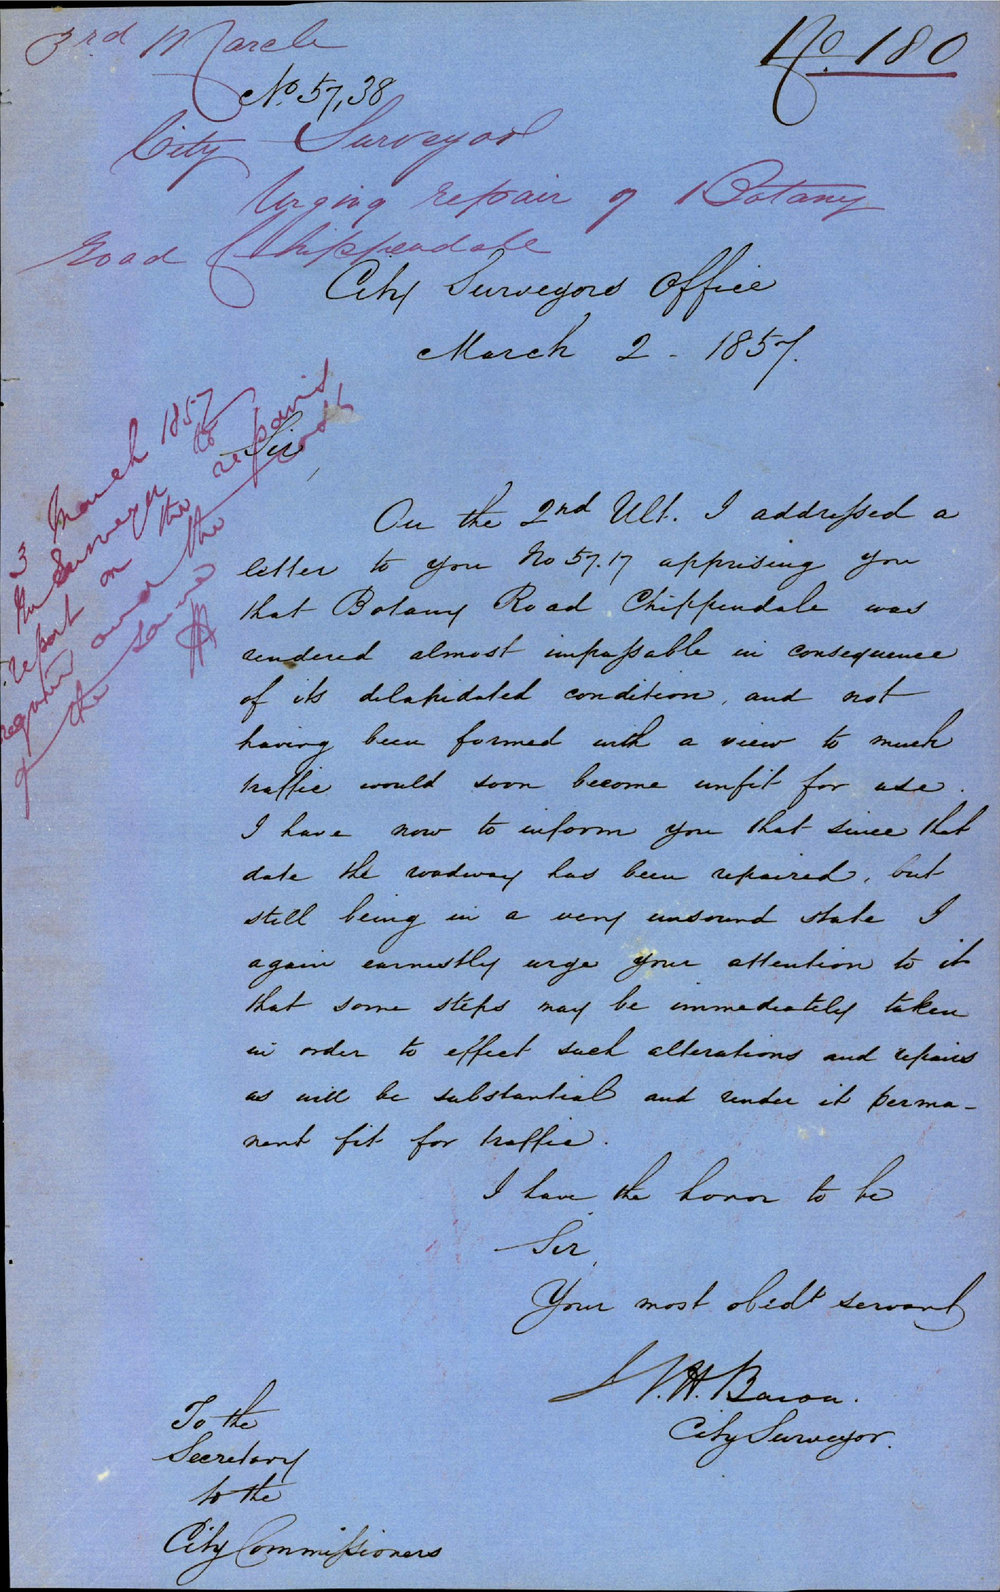 3rd March
No. 180
No. 57,38
City Surveyor
Urging repair of Botany
Road Chippendale
City Surveyors Office
March 2 - 1857.
3 March 1857
The Surveyor to
report on the repairs
required over the road &
the same
Sir,
On the 2nd Ult. I addressed a
letter to you No 57.17 apprising you
that Botany Road Chippendale was
rendered almost impassable in consequence
of its dilapidated condition, and not
having been formed with a view to much
traffic would soon become unfit for use.
I have now to inform you that since that
date the roadway has been repaired, but
still being in a very unsound state I
again earnestly urge your attention to it
that some steps may be immediately taken
in order to effect such alterations and repairs
as will be substantial and render it perma-
nent fit for traffic.
I have the honor to be
Sir,
Your most obedt servant
W. H. Bacon.
City Surveyor.
To the
Secretary
to the
City Commissioners